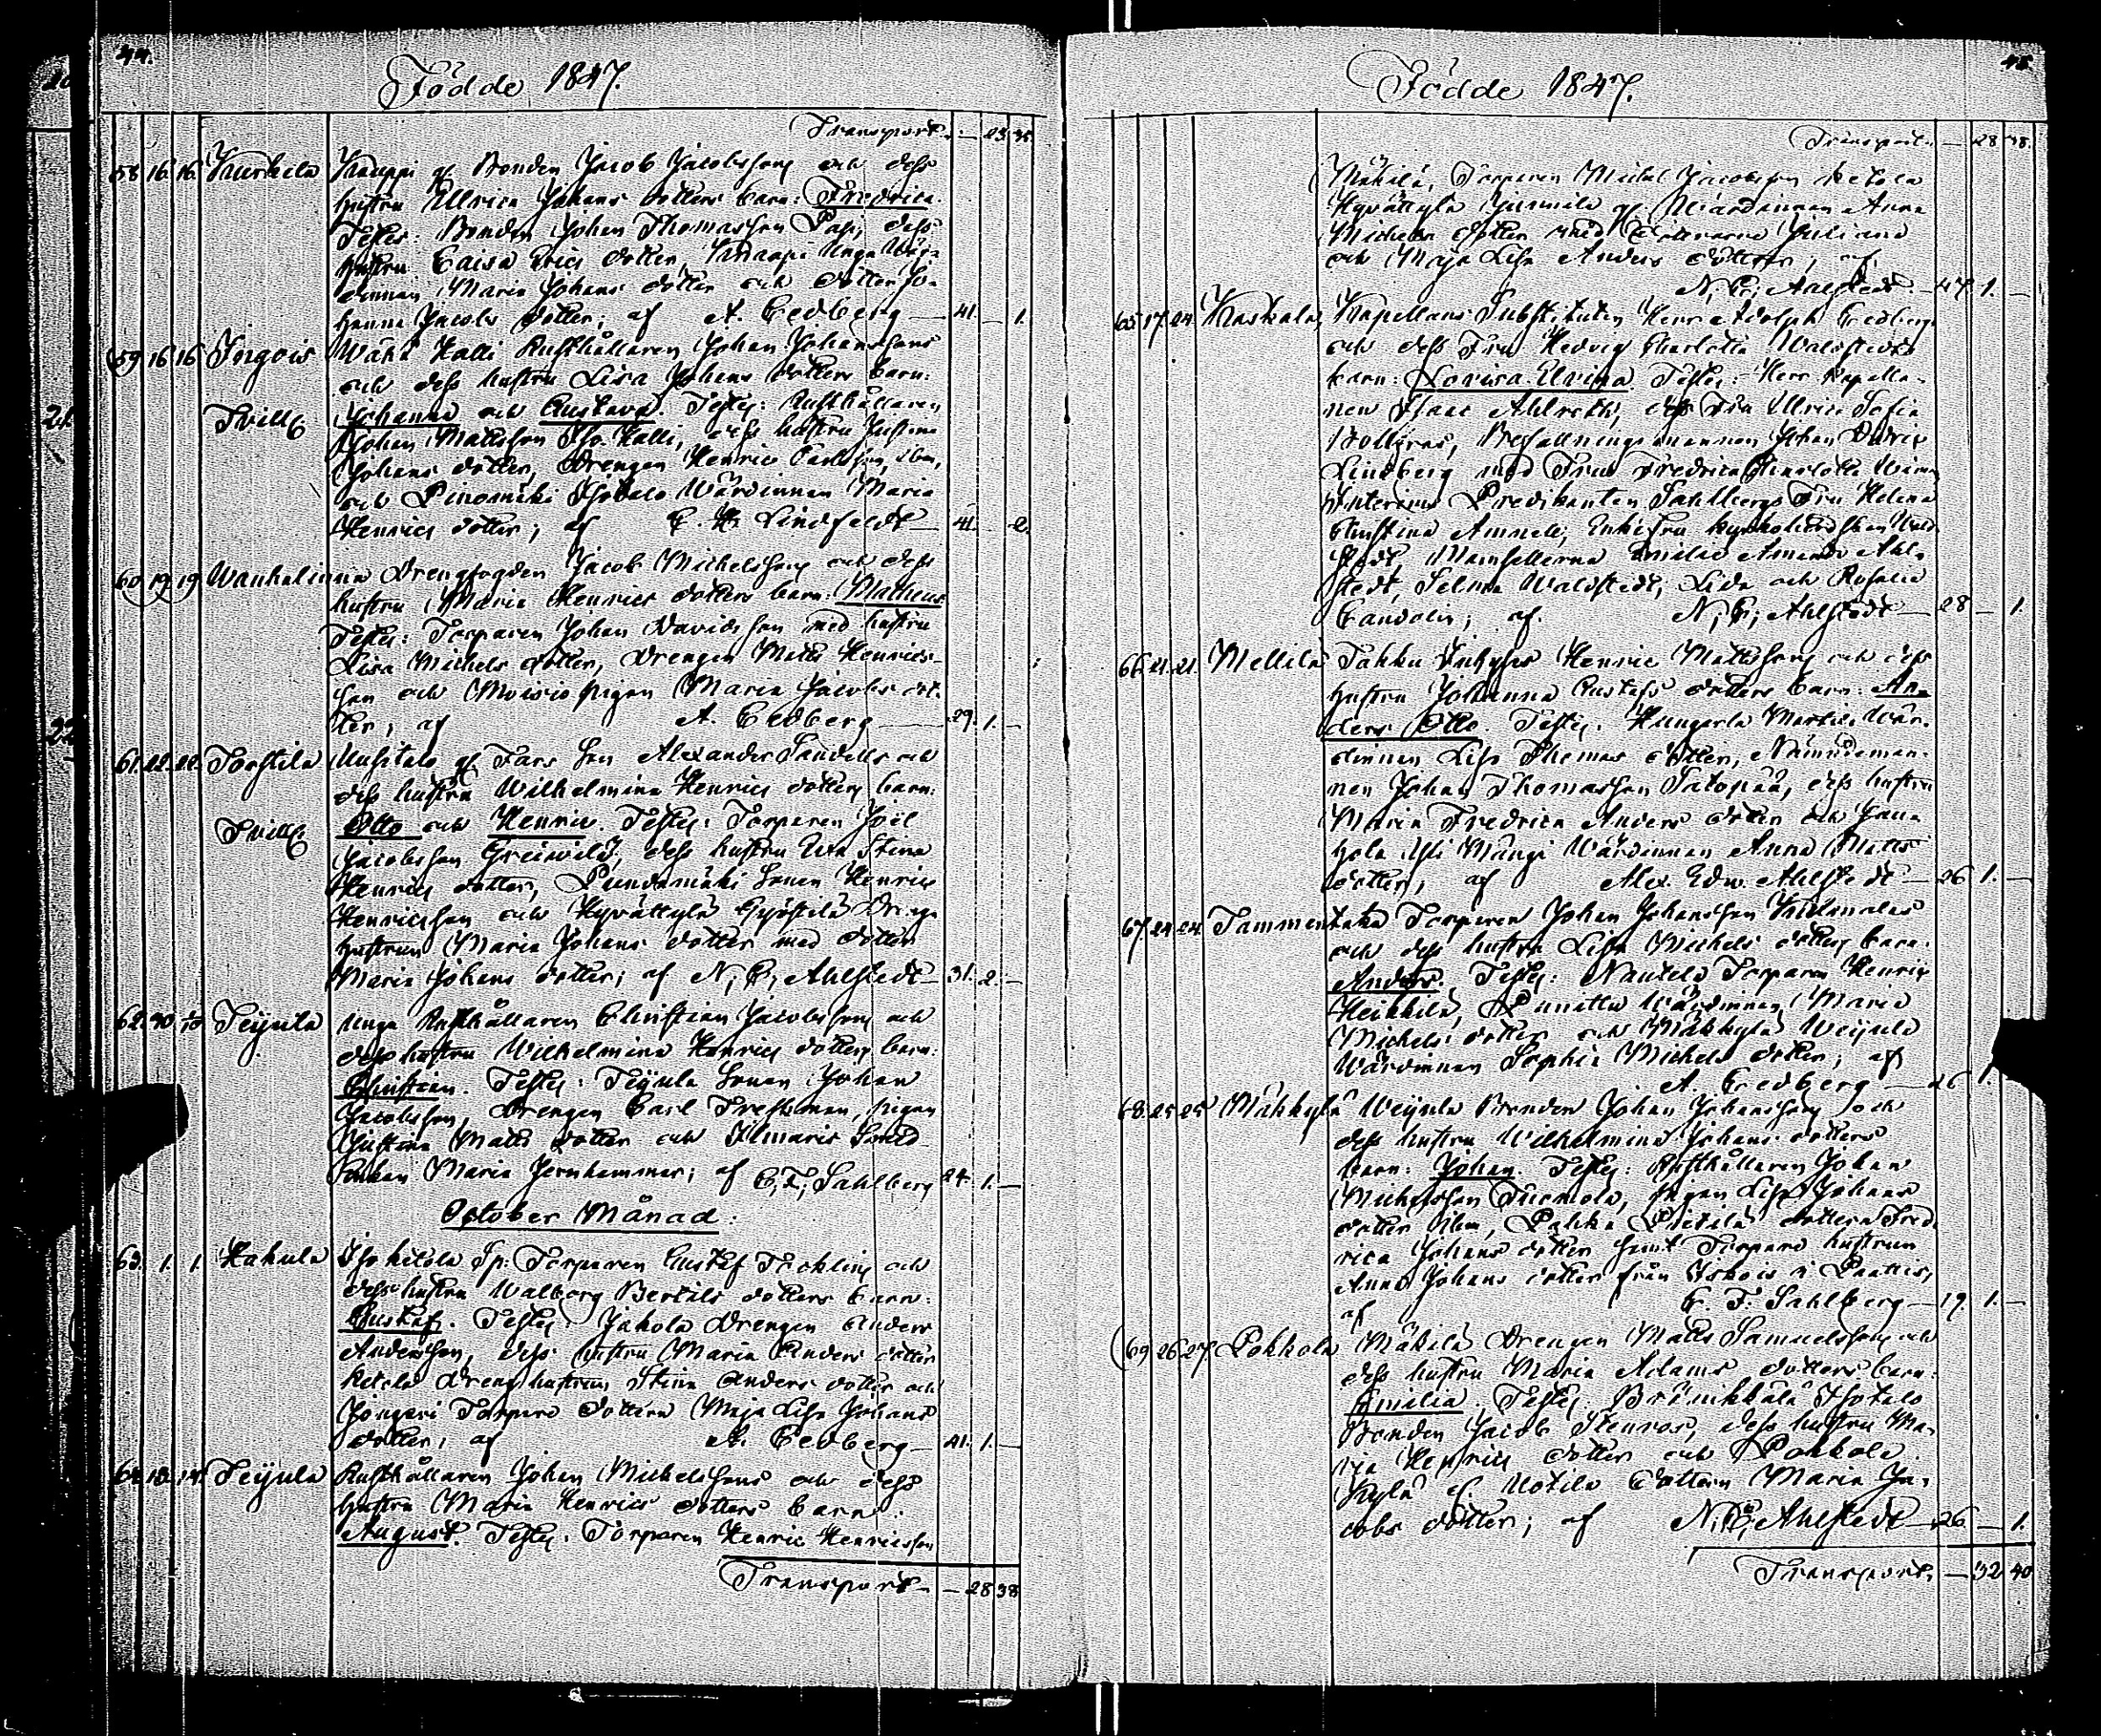 44.
Födde 1847.
Transport. — 23. 35.
58 16. 16. Kurkela Knuppi gl. Bonden Jacob Jacobssons och dess
hustru Ullrica Johans dotters barn: Fredrica.
Testes: Bonden Johan Thomasson Papi, dess
hustru Caisa Erics dotter, Knaapi Unga Wär-
dinnan Maria Johans dotter och dotter Jo-
hanna Jacobs dotter; af A. Cedberg — 41. — 1.
59 16 16 Ingois Wähä Kalli Rusthållaren Johan Johanssons
och dess hustru Lisa Johans dotters barn:
Tvill. Johanna och Gustava. Testes: Rusthållaren
Johan Mattsson Iso Kalli, dess hustru Justina
Johans dotter, Drengen Henric Carlsson, ibm,
och Pinomäki Isotalo Wärdinnan Maria
Henrics dotter; af E. H. Lindfeldt — 41. — 2.
60 19 19 Wanhalinna Drengfogden Jacob Michelssons och dess
hustru Maria Henrics dotters barn: Matheus
Testes: Torparen Johan Davidsson med hustru
Lisa Michels dotter, Drengen Matts Henrics-
son och Moisio pigan Maria Jacobs dot-
ter; af A. Cedberg — 29. 1. —
61. 22. 22. Torstila Uusitalo gl. Fars Son Alexander Sandells och
dess hustru Wilhelmina Henrics dotters barn:
Tvill. Otto och Henric. Testes: Torparen Joel
Jacobsson Greiwilä, dess hustru Eva Stina
Henrics dotter, Pundamäki Sonen Henric
Henricsson och Hyvättylä Eyöstilä Dreng
hustrun Maria Johans dotter med dotter
Maria Johans dotter; af N. C. Ahlstedt — 31. 2. —
62. 30 1/10 Teijula Unga Rusthållaren Christian Jacobssons och
dess hustru Wilhelmina Henrics dotters barn:
Christian. Testes: Teijula Sonen Johan
Jacobsson, Drengen Carl Freshman, pigan
Justina Matts dotter och Ilmaris Smed-
Enkan Maria Jernhammar; af C. F. Sahlberg 24. 1. —
October Månad:
63. 1. 1. Hakula Isoketola Sp. Torparen Gustaf Frohling och
dess hustru Walborg Bertils dotters barn:
Gustaf. Testes: Jakola Drengen Anders
Andersson, dess hustru Maria Anders dotter
Ketola Dreng hustrun Stina Anders dotter och
Jöngeri Torpare dottern Maja Lisa Johans
dotter; af A. Cedberg — 41. 1. —
64. 13. 14. Teijula Rusthållaren Johan Michelssons och dess
hustru Maria Henrics dotters barn:
August. Testes: Torparen Henric Henricsson
Transport — — 28 38
45.
Födde 1847.
Transport. — 28 38.
Mäkilä, Torparen Michel Jacobsson Ketola
Hyvättylä Junnila gl. Wärdinnan Anna
Michels dotter med Döttrarne Juliana
och Maja Lisa Anders döttrar; af
N. C. Ahlstedt. — 47. 1. —
65. 17. 24. Kaskala, Kapellans Substituten Herr Adolph Cedbergs
och dess Fru Hedvig Charlotta Waldstedts
barn: Lovisa Elvina. Testes: Herr Kapella-
nen Isaac Ahlroth, dess Fru Ullrica Sofia
Rollfras, Befallningsmannen Johan Didric
Lindberg med Frun Fredrica Charlotta
Interims Predikanten Sahlbergs Fru Helena
Christina Amnell, Enkefru Kyrkoherdskan Wald-
stedt, Mamsellerna Emilie Amanda Ahl-
stedt, Selma Waldstedt, Lida och Rosalie
Candolin; af. N. C. Ahlstedt — 28 — 1.
66. 21. 21. Mellilä Takku Inhyses Henric Mattssons och dess
hustru Johanna Gustafs dotters barn: An-
ders Otto. Testes: Kungerla Marttila Wär-
dinnan Lisa Thomas dotter, Nämndeman-
nen Johan Thomasson Satopää, dess hustru
Maria Fredrica Anders dotter och Jaua
hola Isti Mångi Wärdinnan Anna Matts
dotter; af Alex. Edw. Ahlstedt — 26 1. —
67. 24 24. Tammentaka Torparen Johan Johansson Kulmalas
och dess hustru Lisa Michels dotters barn:
Anders. Testes: Nautela Torparen Henric
Heikkilä, Punittu Wärdinnan Maria
Michels dotter och Mäkkylä Weijula
Wärdinnan Sophia Michels dotter; af
A. Cedberg — 26 1. —
68. 25 25 Mäkkylä Weijula Bonden Johan Johanssons och
dess hustru Wilhelmina Johans dotters
barn: Johan. Testes: Rusthållaren Johan
Michelsson Tuomola, pigan Lisa Johans
dotter ibm, Pahka Pietilä dottern Fred-
rica Johans dotter samt Torpare hustrun
Anna Johans dotter från Iskois i Paattis;
af C. F. Sahlberg — 19. 1. —
69 26 27. Pokkola Mäkilä Drengen Matts Samuelssons och
dess hustru Maria Adams dotters barn:
Emilia. Testes: Brännikkälä Isotalo
Bonden Jacob Stenros, dess hustru Ma-
ija Henrics dotter och Pokkola
Kylä gl. Uotila dottern Maria Ja-
cobs dotter; af N. C. Ahlstedt — 26 — 1.
Transport. — 32 40